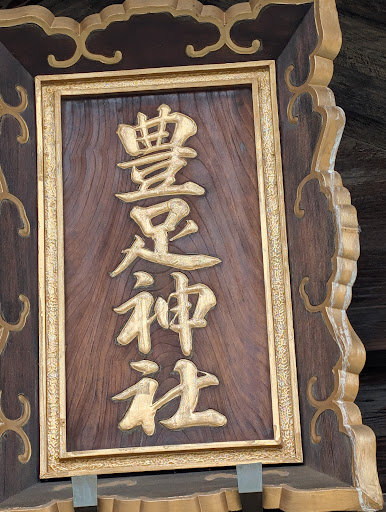 豊足神社